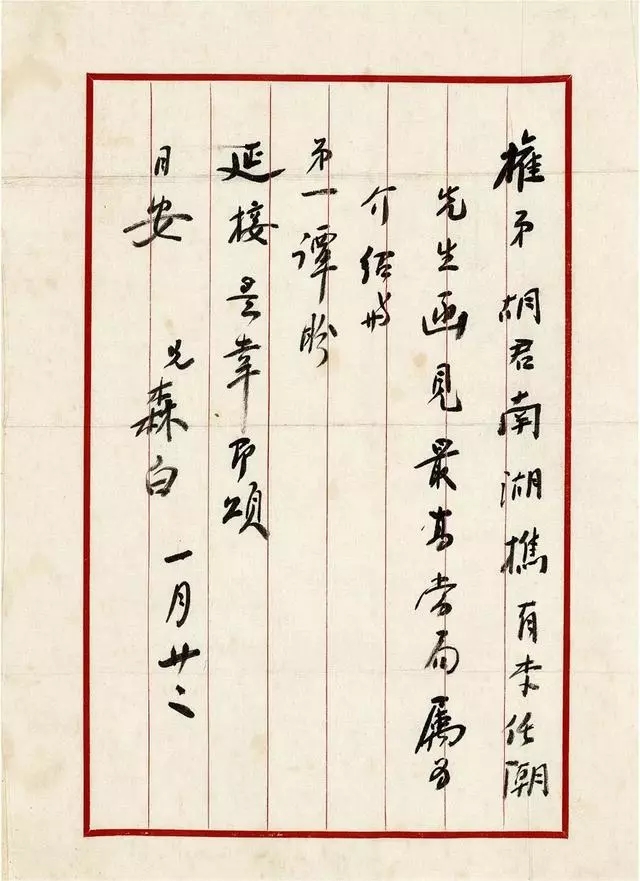 權弟胡君南湖攜有李任潮
先生函見最高当局屬为
介绍於
弟一譚盼
延接是幸即頌
日安 兄森白 一月廿二